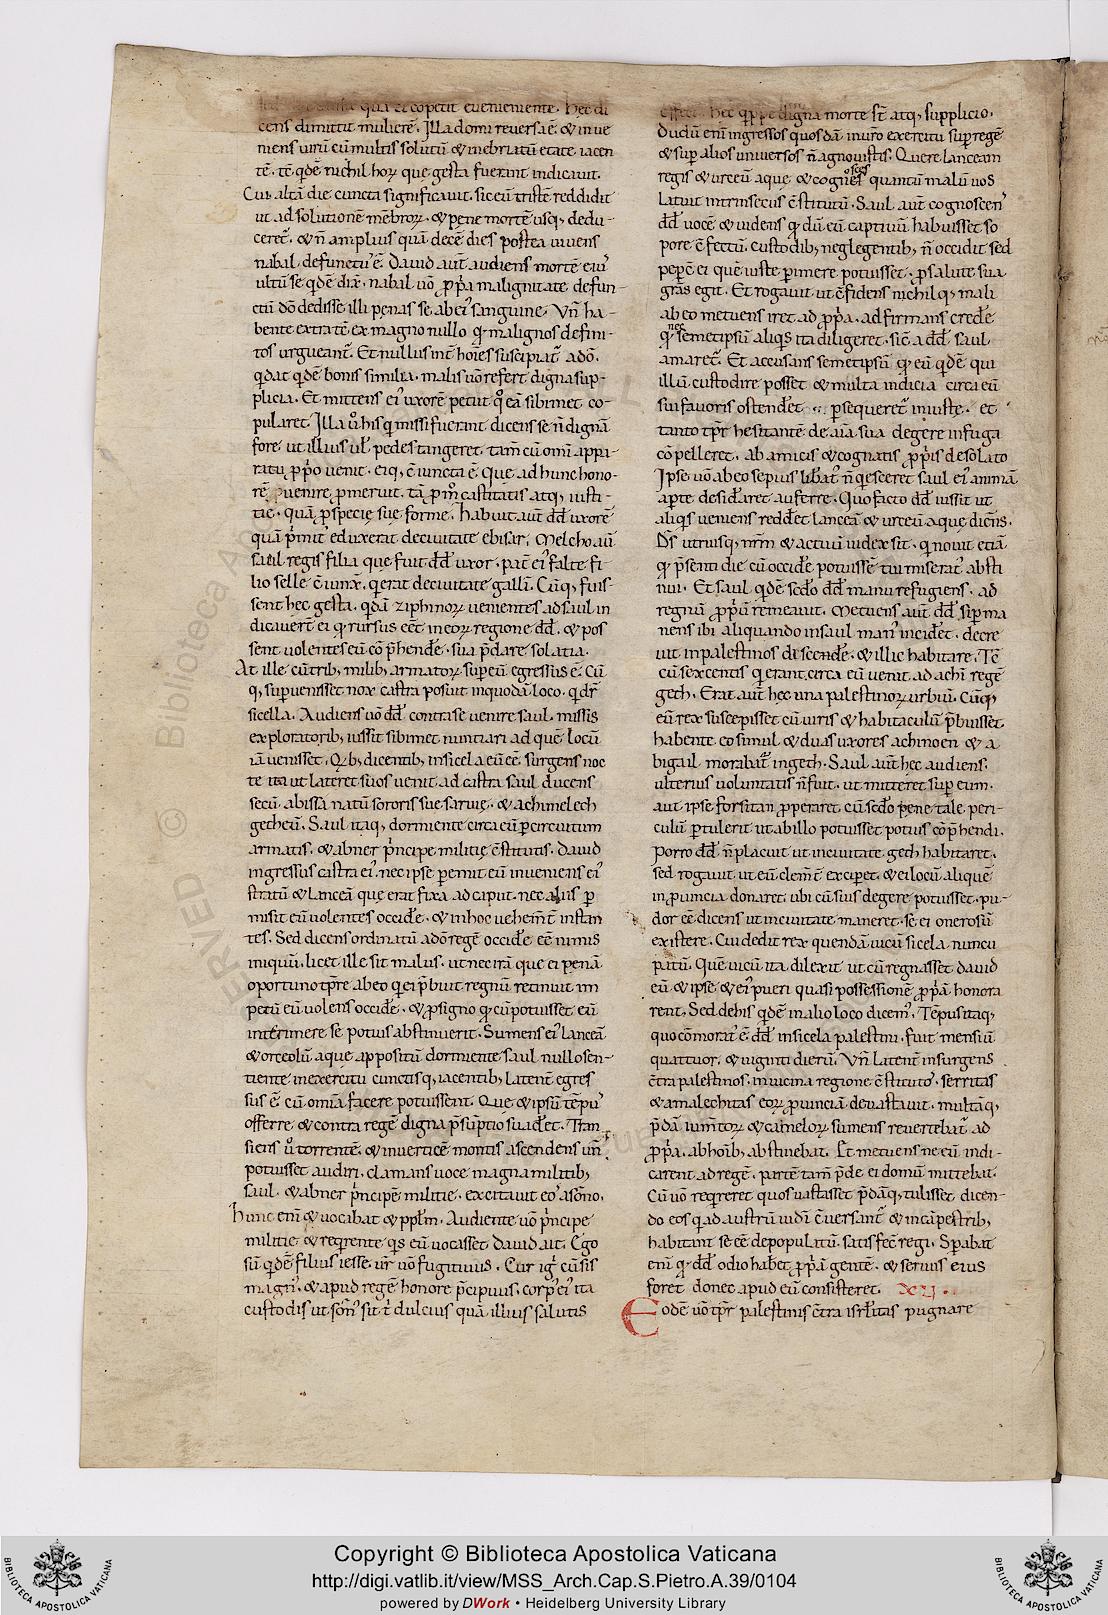 quā te cōpetit eueniente. hec di
cens dimittit mulierē. Illa domi reuersa ē. & inue
niens uirū cū multis solutū & inebriatū etate iacen
tē. tē qdē nichil horꝝ que gesta fuerant indicauit.
Cui altā die cuncta significauit. sic eū tristē reddidit
ut ad solutionē mēbrorꝝ. & pene mortē usq; dedu-
ceret̄. & n̄ amplius quā decē dies postea uiuens
nabal. defunctuˀ ē. Dauid aut̄ audiens mortē eiuˀ
ultū se qdē dix. nabal uō ꝓpa malignitate defun-
ctū dō dedisse illi penas se ab eiˀ sanguine. Vn̄ ha-
bente extratē ex magno nullo qꝫ malignos defini-
tos urgueant̄. Et nullus int̄ hoīes suscipiat̄ a dō.
qd at qdē bonis similia. malis uō refert digna sup-
plicia. Et mittens eiˀ uxorē petiit qͦ eā sibimet co-
pularet. Illa uͦ his q missi fuerant dicens se n̄ dignā
fore. ut illius ut pedes tangeret. tam̄ cū omī appa-
ratu ꝓpo uenit. eiq; ciuncta ē. que ad hunc hono-
rē ꝑuenire ꝓmeruit. tā ꝓ moꝝ castitatis atq; iusti-
tie. quā ꝓ specię sue forme. habuit aut̄ dd̄ uxorē
quā pmit̄ eduxerat de ciuitate ebisar. Melcho. aū
saul regis filia que fuit dd̄ uxor. pat̄ eiˀ falte fi-
lio selle ciunx. q erat de ciuitate gallī. Cūq; fuis-
sent hec gesta. qdā ziphinorꝝ uenientes ad saul in
dicauerт̄ ei qꝫ rursus eēt in eorꝝ regione dd̄. & pos
sent uolentes eū cōp̄hendē. sua p̄dare solatia.
At ille cū trib; milib; armatorꝝ sup eū egressus ē. Cū
q; superuenisset nox castra posuit in quodā loco. q dr̄
sicella. Audiens uō dd̄ contra se uenire saul. missis
exploratorib; iussit sibimet nuntiari ad quē locū
iā uenisset. Qb; dicentib; in sicela eū cē. surgens noc
te ita ut lateret suos uenit ad castra saul ducens
secū. abissā natū sororis sue saruie. & achimelech
getheū. Saul itaq; dormiente circa eū p circuitum
armatis. & abner p̄ncipe militię c̄stitutis. dauid
ingressus castra eiˀ. nec ipse ꝑemit eū inueniens eiˀ
stratū & lanceā que erat fixa ad caput. nec alius ꝑ
misit eū uolentes occidē. & in hoc uehem̄t instan
tes. Sed dicens ordinatū a dō regē occidē cē nimis
iniquū. licet ille sit malus. ut nec irā que ei penā
oportuno tp̄re ab eo q ei p̄buit regnū retinuit im
petū eū uolens occidē. & ꝓ signo qꝫ cū potuisset eū
interimere. se potius abstinuerit. Sumens eiˀ lanceā
& orceolū aque appositū dormiente saul nullo sen-
tiente in exercitu cunctisq; iacentib; latent̄ egres
sus ē. cū omīa facere potuissent. Que & ipsū tēpuˀ
offerre & contra regē digna p̄suptio suadēt. Tran
siens uͦ torrentē. & in uerticē montis ascendens un̄
potuisset audiri. clamans uoce magna militib;
saul. & abner p̄ncipē militie. excitauit eoˀ a sōno.
hunc enī & uocabat & ppłm. Audiente uō p̄ncipe
militie & reqrente qs eū uocasset dauid ait. Ego
sū qdē filius iesse. ur̄ uō fugitiuus. Cur igͥ cū sis
magnˀ. & apud regē honore p̄cipuus. corpˀ eiˀ ita
custodis ut sōnˀ sit t̄ dulcius quā illius salutis
Hec qppe digna morte st̄ atq; supplicio.
Dudū enī ingressos quosdā in ur̄o exercitu sup regē
& sup alios uniuersos n̄ agnouistis. Quere lanceam
regis & urceū aque. & cognosces quantū malū uos
latuit intrinsecus c̄stitutū. Saul aut̄ cognoscenˀ
dd̄ uocē & uidens qꝫ dū eū captiuū habuisset so
pore c̄fectū. custodib; neglegentib; n̄ occidit sed
peꝑcē ei quē iuste ꝑimere potuisset. ꝓ salute sua
gras egit. Et rogauit ut c̄fidens nichilq; mali
ab eo metuens iret ad ꝓpa. adfirmans credē
qꝫ nec semetipsū aliqs ita diligeret. sic a dd̄ saul
amaret̄. Et accusans semetipsū qꝫ eū qdē qui
illū custodire posset & multa indicia circa eū
sui fauoris ostendet. ꝑsequeret̄ iniuste. et
tanto tpr hesitantē de aīa sua degere in fuga
cōpelleret. ab amicis & cognatis ꝓpis desolato
Ipse uō ab eo sepius liberatˀ n̄ qesceret saul eiˀ animā
aperte desiderāret auferre. Quo facto dd̄ iussit ut
aliqs ueniens reddet lanceā & urceū aque dicēs.
Ds̄ utriusq; nrm̄ & actuū iudex sit. q nouit etiā
qꝫ p̄senti die cū occidē potuissē tui miseratˀ absti
nui. Et saul qdē sedo dd̄ manu refugiens. ad
regnū ꝓpriū remeauit. Metuens aut̄ dd̄ supma
nens ibi aliquando in saul manˀ incidet. decre
uit in palestinos discendē. & illic habitare. Tē
cū sexcentis q erant circa eū uenit ad achī regē
geth. Erat aut̄ hęc una palestinorꝝ urbiū. Cūq;
eū rex suscepisset cū uiris & habitaculū p̄buisset
habente eo simul & duas uxores achinoen & a
bigail morabat̄ in geth. Saul aut̄ hęc audiens.
ulterius uoluntatis n̄ fuit. ut mitteret sup eum.
aut ipse forsitan ꝓperaret eū sedo pene tale peri-
culū ꝑtulerit ut ab illo potuisset potius cōp̄hendi.
Porro dd̄ n̄ placuit ut in ciuitate geth habitaret.
sed rogauit. ut eū clem̄t exciꝑet. & ei locū aliquē
in ꝓuincia donaret. ubi cū suis degere potuisset. pu-
dor cē dicens ut in ciuitate maneret. se ei onerosū
existere. Cui dedit rex quendā uicū sicela nuncu
patū. Quē uicū ita dilexit ut cū regnasset dauid
eū & ipse & eiˀ pueri quasi possessionē ꝓpā honora
rent. Sed de his qdē in alio loco dicemˀ. Tēpus itaq;
quo cōmoratˀ ē dd̄ in sicela palestini. fuit mensiū
quattuor. & uiginti dierū. Vn̄ latent̄ insurgens
c̄tra palestinos. in uicina regione c̄stitutoˀ. serritas
& amalechitas eorꝝ ꝓuinciā deuastauit. multāq;
p̄dā iumtorꝝ & camelorꝝ sumens reuertebat̄ ad
ꝓpa. ab hoib; abstinebat. Et metuens ne eū indi-
carent ad regē. partē tam̄ p̄de. ei domū mittebat.
Cū uō reqreret quos uastasset p̄dāq; tulisset dicen-
do eos q ad austrū iudī c̄uersant̄ & in cāpestrib;
habitant se cē depopulatū. satisfec̄ regi. Sperabat
enī qꝫ dd̄ odio haberet ꝓpā gentē. & seruus eius
foret donec apud eū consisteret. XII.
Eodē uō tp̄r palestinis c̄tra isrłitas pugnare